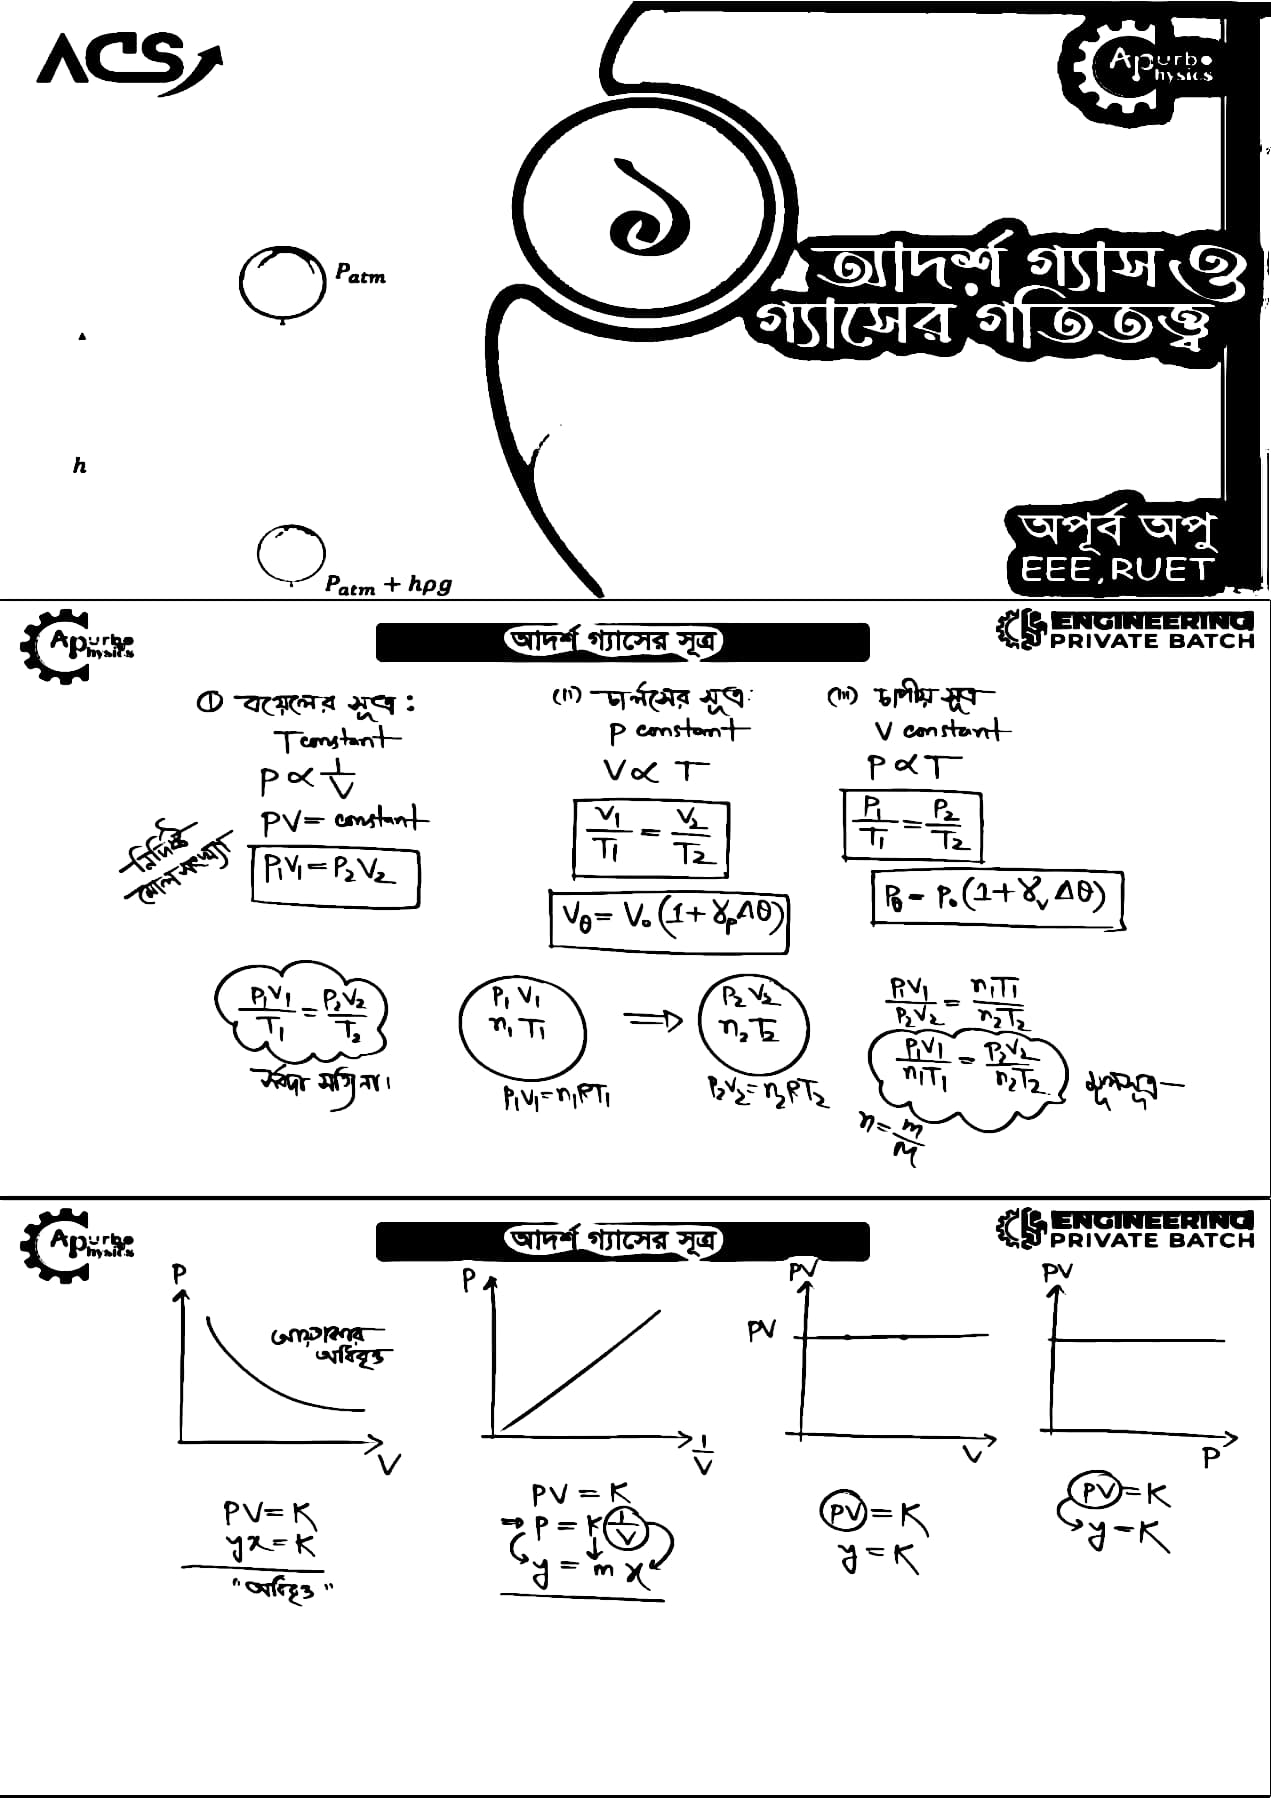 ACS
Apurbo
Physics
১
P_atm
আদর্শ গ্যাস ও
গ্যাসের গতিতত্ত্ব
h
P_atm + hρg
অপূর্ব অপু
EEE, RUET
Apurbo
Physics
আদর্শ গ্যাসের সূত্র
ENGINEERING
PRIVATE BATCH
(i) বয়েলের সূত্র :
T constant
P ∝ 1/V
PV = constant
P₁V₁ = P₂V₂
নির্দিষ্ট
মোল সংখ্যা
(ii) চার্লসের সূত্র:
P constant
V ∝ T
V₁/T₁ = V₂/T₂
V_θ = V₀ (1 + γ_p Δθ)
(iii) চাপীয় সূত্র
V constant
P ∝ T
P₁/T₁ = P₂/T₂
P_θ = P₀ (1 + γ_v Δθ)
P₁V₁/T₁ = P₂V₂/T₂
সর্বদা সত্যি না।
P₁ V₁
n₁ T₁
P₁V₁ = n₁RT₁
⇒
P₂ V₂
n₂ T₂
P₂V₂ = n₂RT₂
P₁V₁/P₂V₂ = n₁T₁/n₂T₂
P₁V₁/n₁T₁ = P₂V₂/n₂T₂
মূলসূত্র
n = m/M
Apurbo
Physics
আদর্শ গ্যাসের সূত্র
ENGINEERING
PRIVATE BATCH
P
আয়তাকার
অধিবৃত্ত
V
PV = K
yx = K
"অধিবৃত্ত"
P
1/V
PV = K
⇒ P = K 1/V
y = m x
PV
PV
V
PV = K
y = K
PV
P
PV = K
y = K